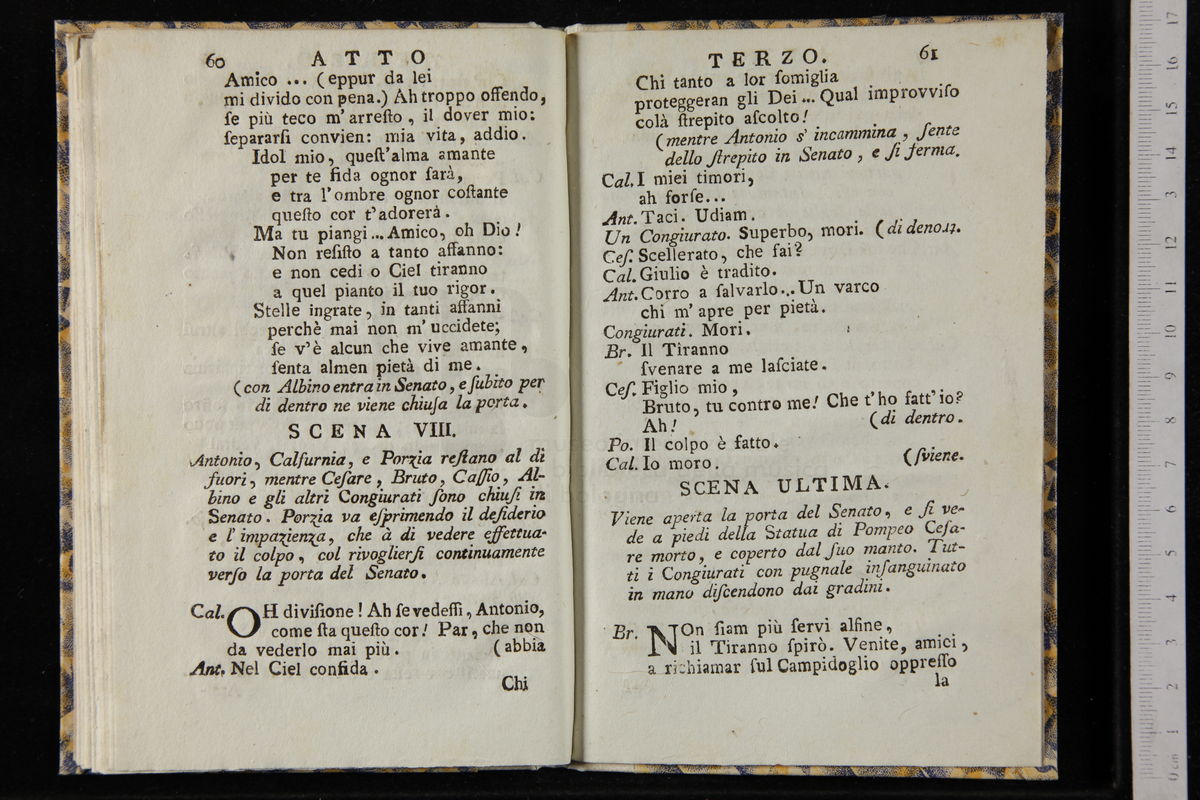 60 ATTO
Amico ... (eppur da lei
mi divido con pena.) Ah troppo offendo,
ſe più teco m' arreſto, il dover mio:
ſepararſi convien: mia vita, addio.
Idol mio, queſt'alma amante
per te fida ognor ſarà,
e tra l'ombre ognor coſtante
queſto cor t'adorerà.
Ma tu piangi ... Amico, oh Dio!
Non reſiſto a tanto affanno:
e non cedi o Ciel tiranno
a quel pianto il tuo rigor.
Stelle ingrate, in tanti affanni
perchè mai non m' uccidete;
ſe v'è alcun che vive amante,
ſenta almen pietà di me.
(con Albino entra in Senato, e ſubito per
di dentro ne viene chiuſa la porta.
SCENA VIII.
Antonio, Calfurnia, e Porzia reſtano al di
fuori, mentre Ceſare, Bruto, Caſſio, Al-
bino e gli altri Congiurati ſono chiuſi in
Senato. Porzia va eſprimendo il deſiderio
e l' impazienza, che à di vedere effettua-
to il colpo, col rivoglierſi continuamente
verſo la porta del Senato.
Cal. OH diviſione! Ah ſe vedeſſi, Antonio,
come ſta queſto cor! Par, che non
da vederlo mai più. (abbia
Ant. Nel Ciel confida.
Chi
TERZO. 61
Chi tanto a lor ſomiglia
proteggeran gli Dei ... Qual improvviſo
colà ſtrepito aſcolto!
(mentre Antonio s' incammina, ſente
dello ſtrepito in Senato, e ſi ferma.
Cal. I miei timori,
ah forſe...
Ant. Taci. Udiam.
Un Congiurato. Superbo, mori. (di
Ceſ. Scellerato, che fai?
Cal. Giulio è tradito.
Ant. Corro a ſalvarlo... Un varco
chi m' apre per pietà.
Congiurati. Mori.
Br. Il Tiranno
ſvenare a me laſciate.
Ceſ. Figlio mio,
Bruto, tu contro me! Che t' ho fatt' io?
Ah! (di dentro.
Po. Il colpo è fatto.
Cal. Io moro. (ſviene.
SCENA ULTIMA.
Viene aperta la porta del Senato, e ſi ve-
de a piedi della Statua di Pompeo Ceſa-
re morto, e coperto dal ſuo manto. Tut-
ti i Congiurati con pugnale inſanguinato
in mano diſcendono dai gradini.
Br. NOn ſiam più ſervi alfine,
il Tiranno ſpirò. Venite, amici,
a richiamar ſul Campidoglio oppreſſo
la
0 cm 1 2 3 4 5 6 7 8 9 10 11 12 13 14 15 16 17